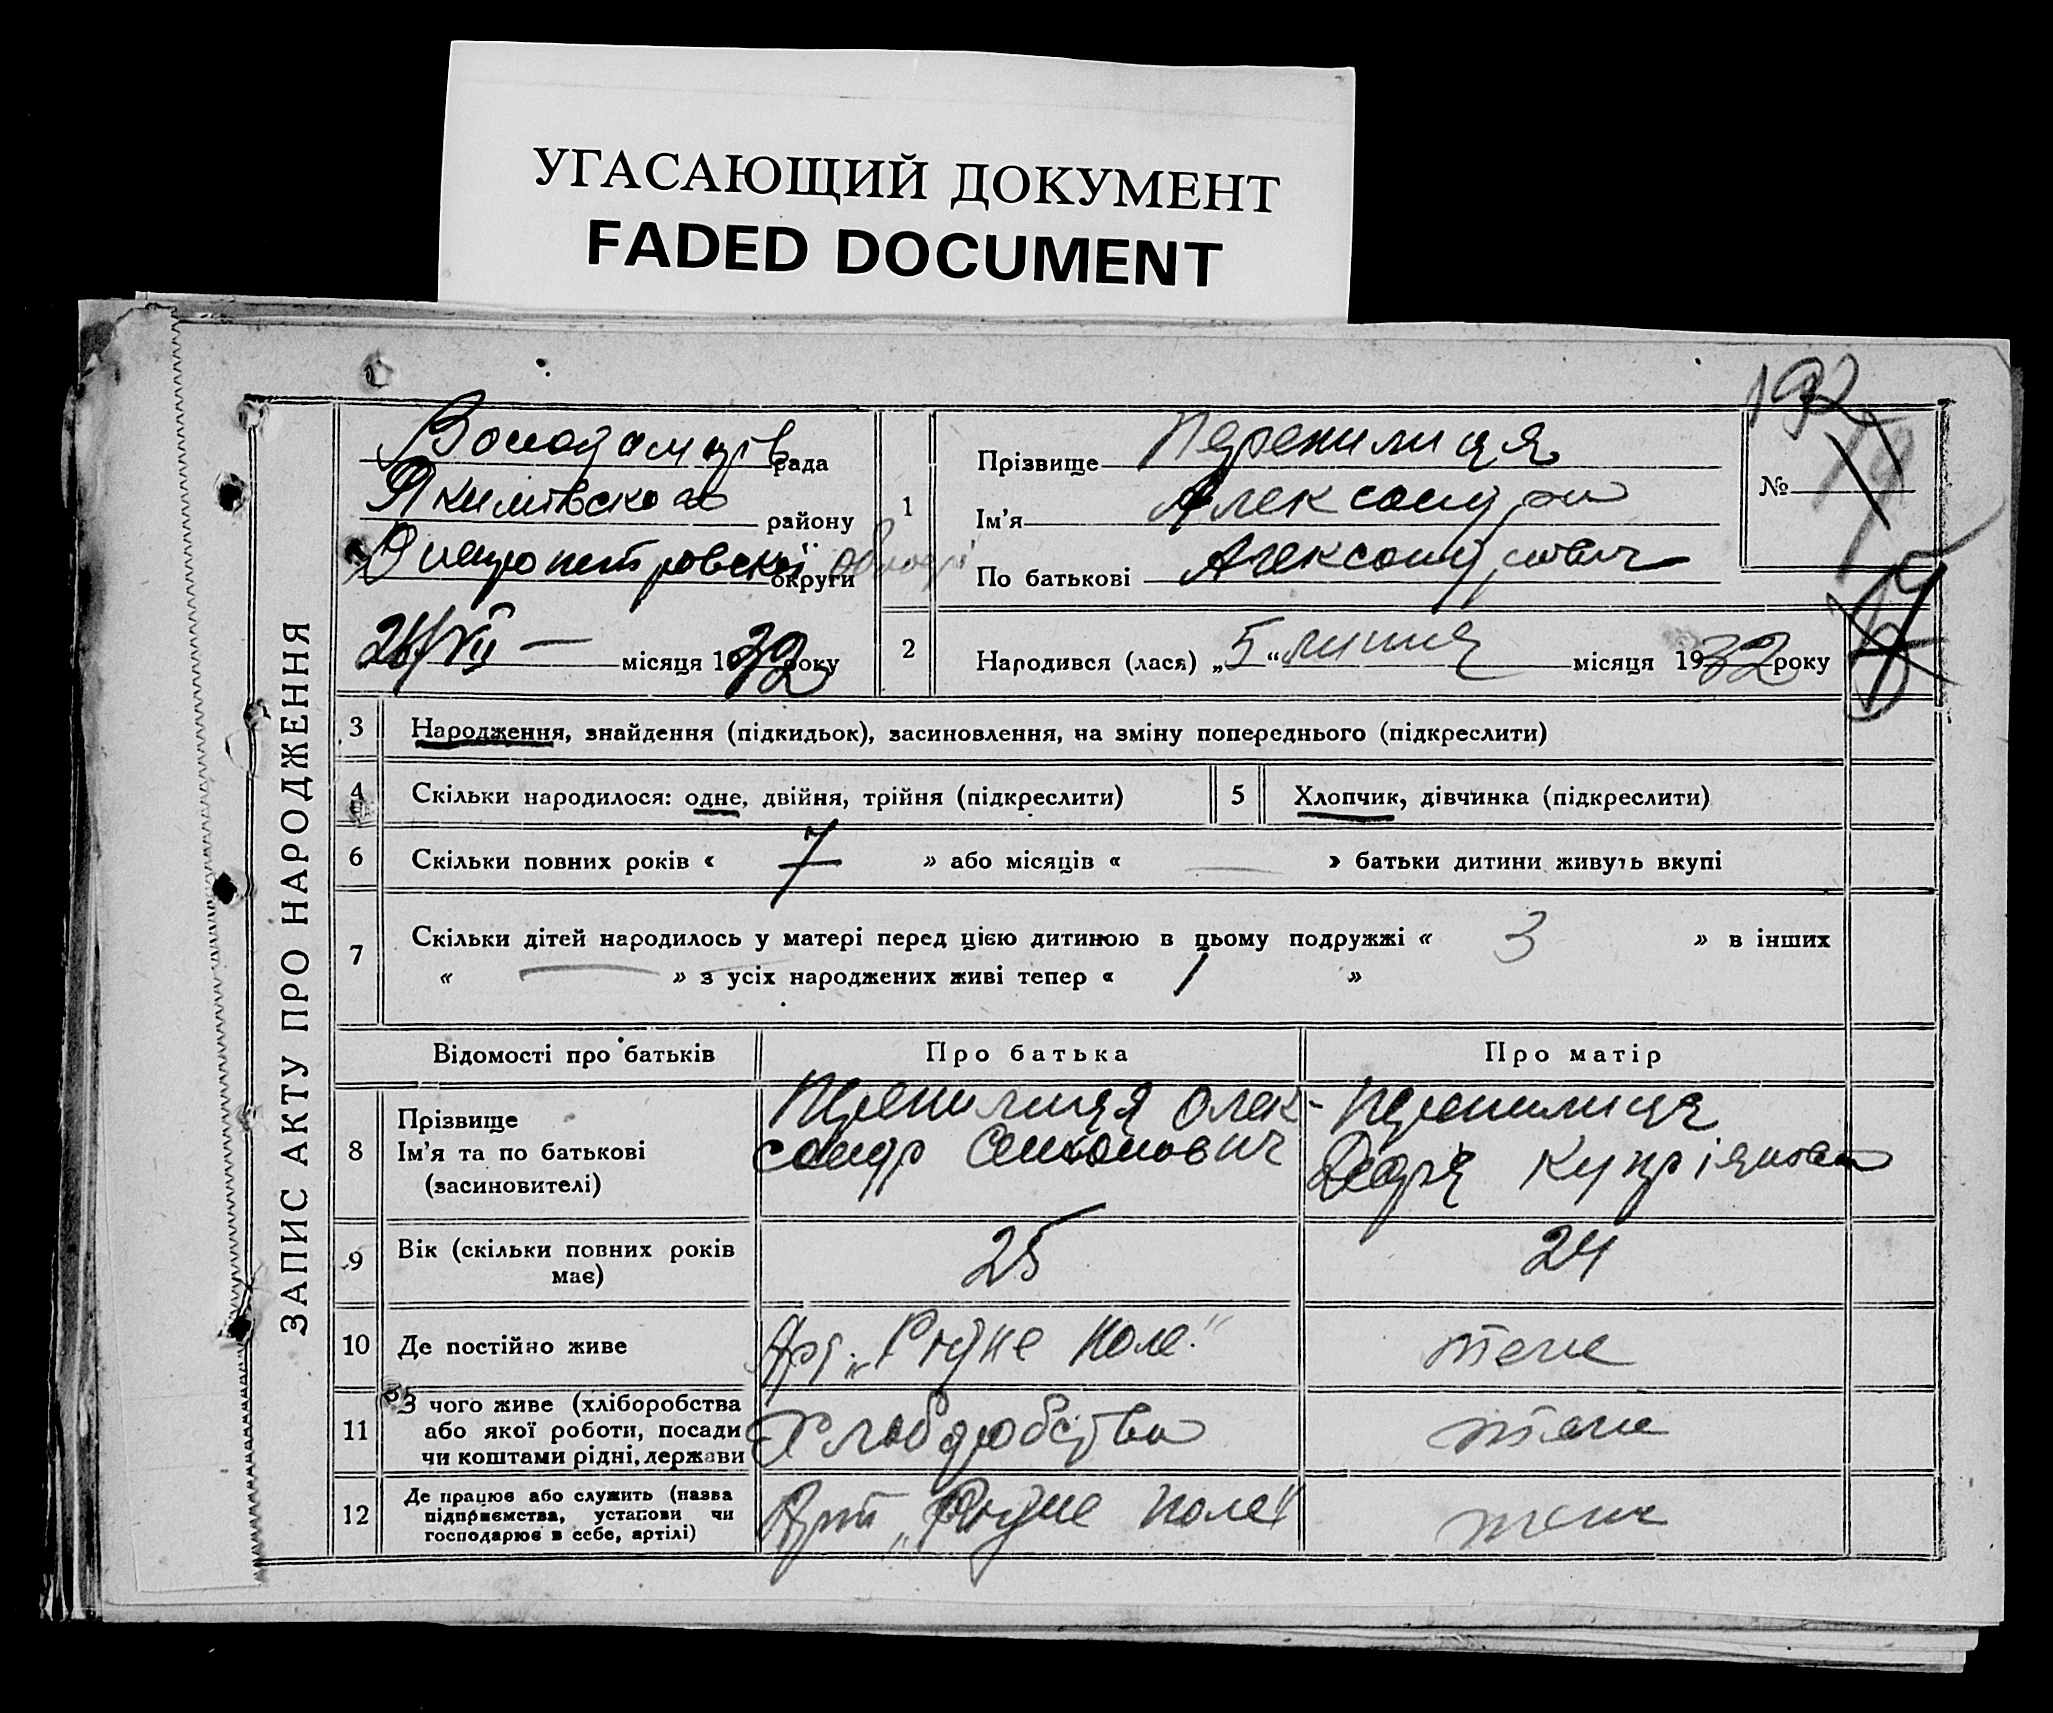 УГАСАЮЩИЙ ДОКУМЕНТ
FADED DOCUMENT
ЗАПИС АКТУ ПРО НАРОДЖЕННЯ
рада
Якимівського району
Днепропетровської округи
28/VII — місяця 1932 року
1
Прізвище Перепилиця
Ім'я Александр
По батькові Александрович
№
192
2
Народився (лася) „5“ липня місяця 1932 року
3 Народження, знайдення (підкидьок), засиновлення, на зміну попереднього (підкреслити)
4 Скільки народилося: одне, двійня, трійня (підкреслити)
5 Хлопчик, дівчинка (підкреслити)
6 Скільки повних років « 7 » або місяців « — » батьки дитини живуть вкупі
7 Скільки дітей народилось у матері перед цією дитиною в цьому подружжі « 3 » в інших
« — » з усіх народжених живі тепер « 1 »
Відомості про батьків
Про батька
Про матір
8 Прізвище
Ім'я та по батькові
(засиновителі)
Перепилиця Олек-
сандр
Перепилиця
Купріянова
9 Вік (скільки повних років
має)
25
24
10 Де постійно живе
Арт. „Рідне поле"
теж
11 З чого живе (хліборобства
або якої роботи, посади
чи коштами рідні, держави
Хліборобства
теж
12 Де працює або служить (назва
підприємства, установи чи
господарює в себе, артілі)
Арт „Рідне поле"
теж